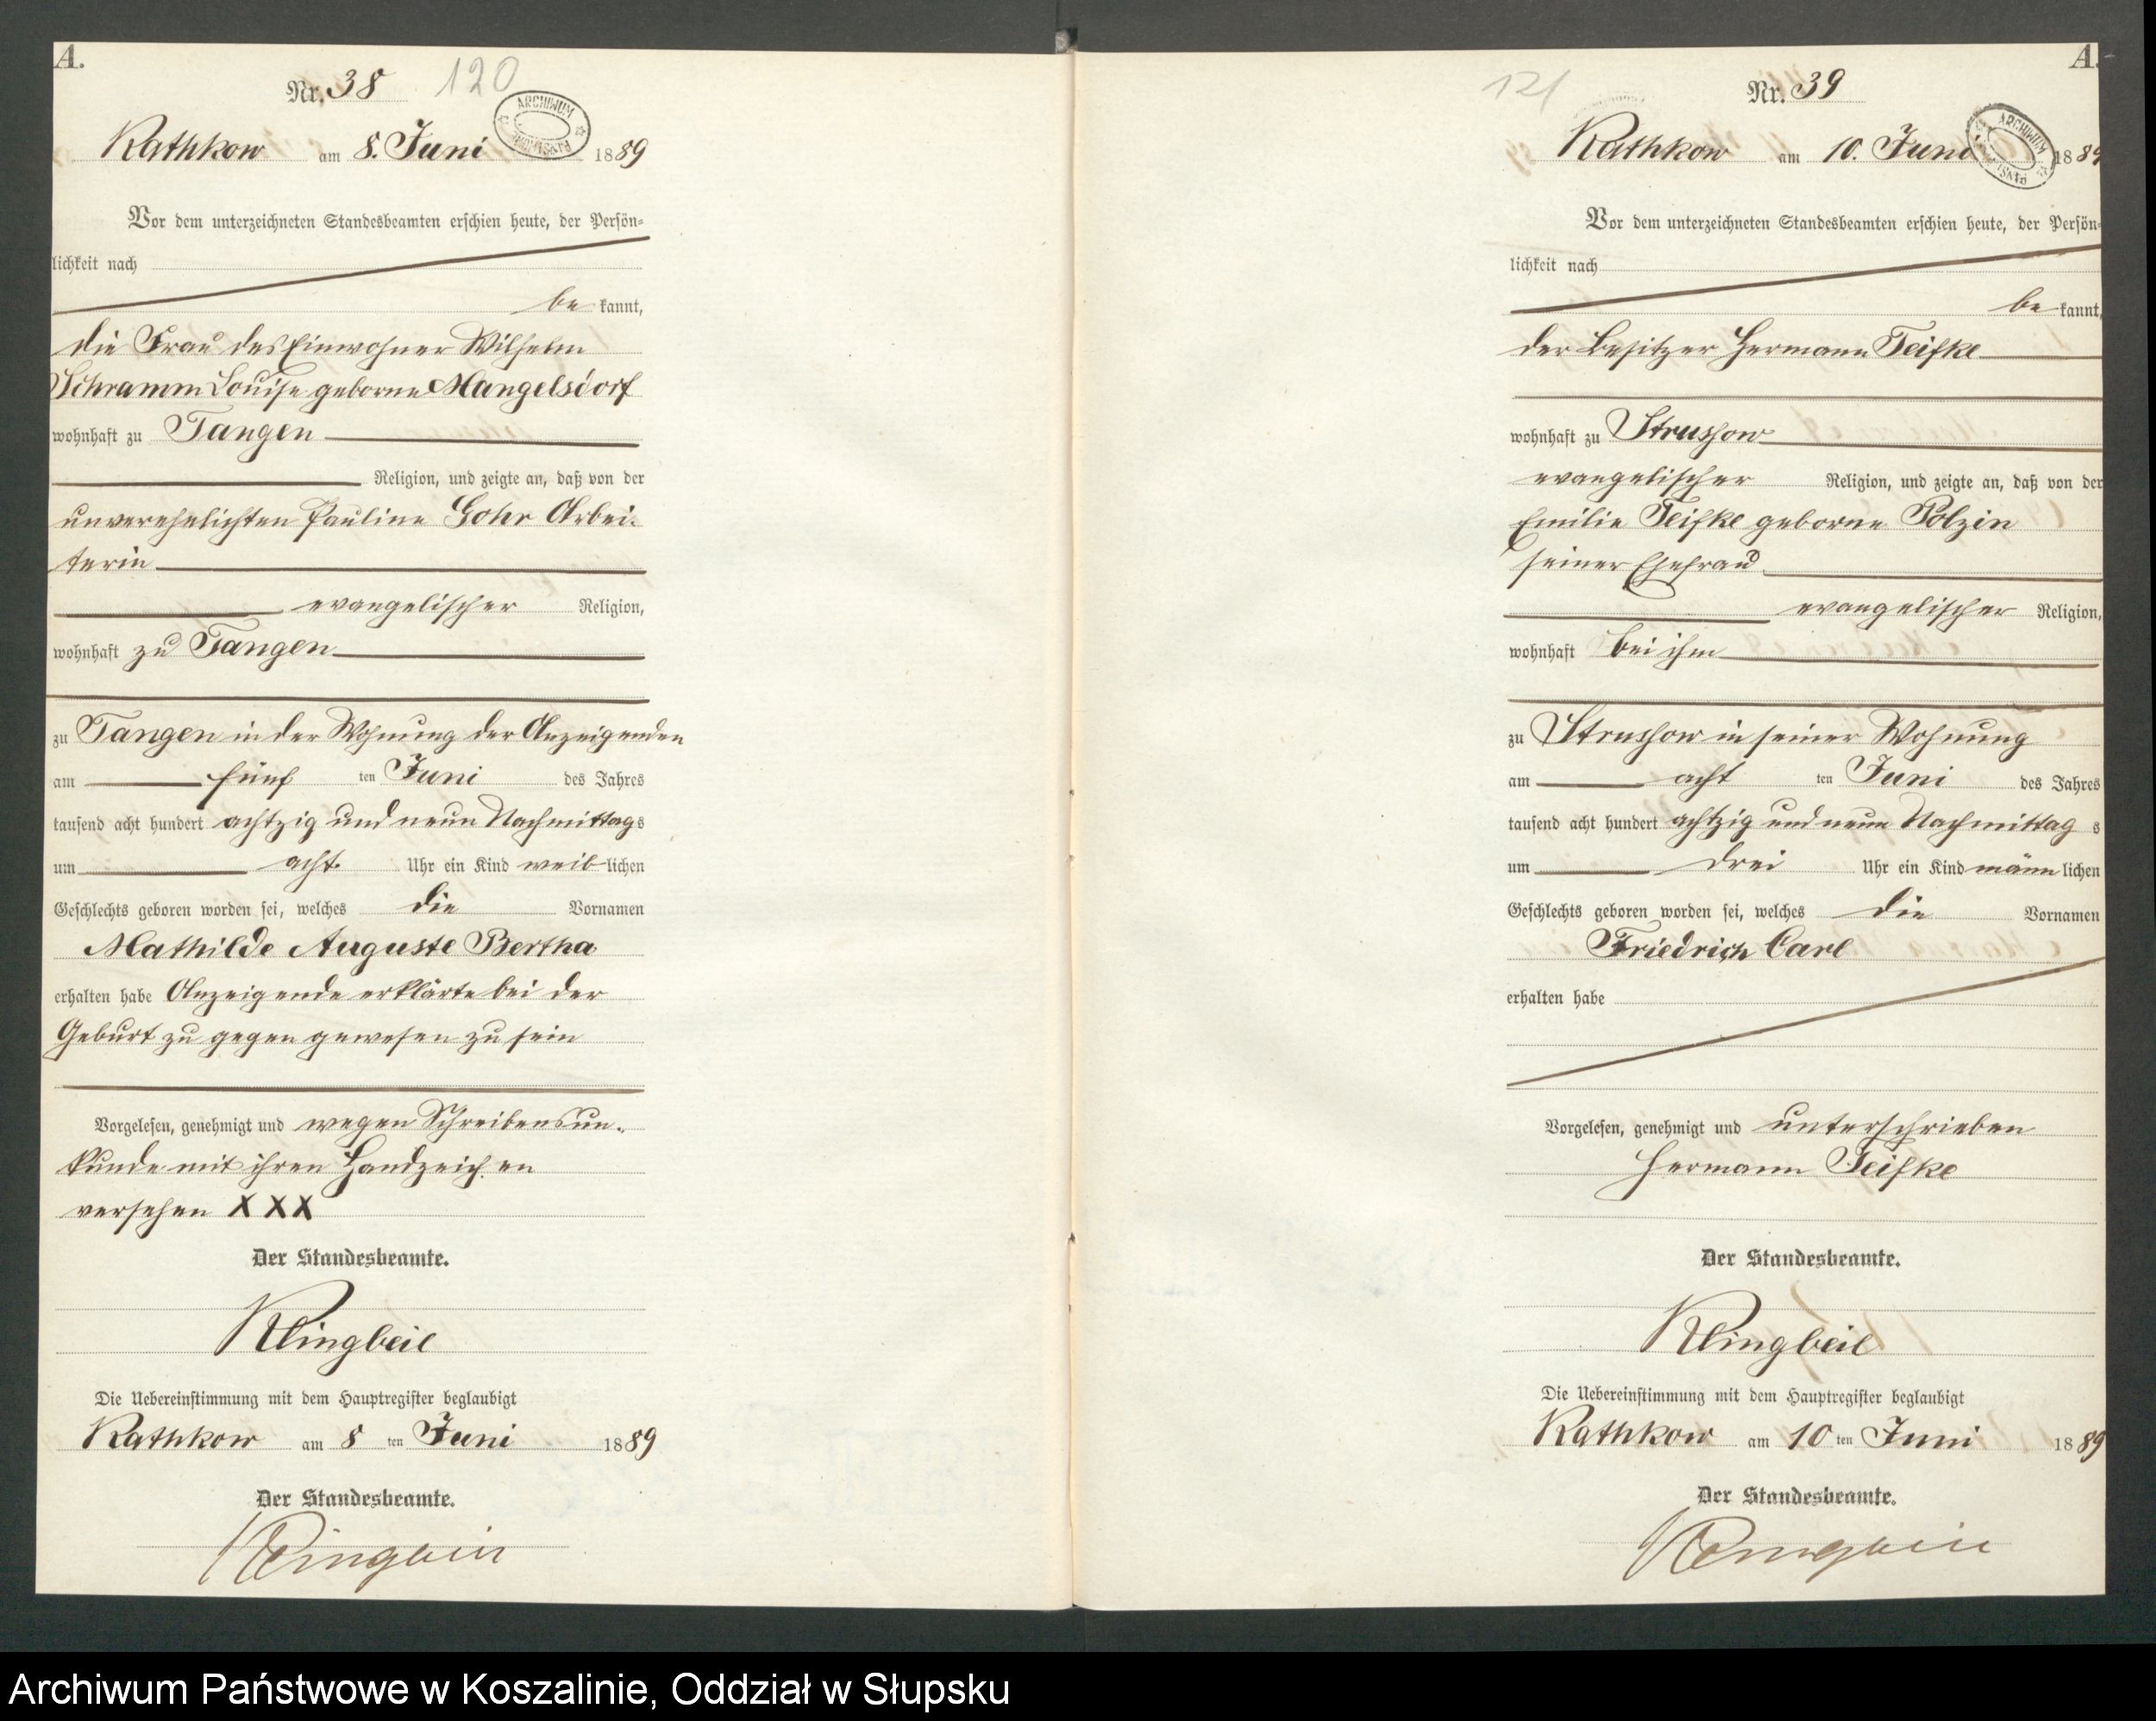 A.
Nr. 38 120
ARCHIWUM
Rathkow am 8. Juni 1889
Vor dem unterzeichneten Standesbeamten erschien heute, der Persön=
lichkeit nach
be kannt,
die Frau des Einwohner Wilhelm
Schramm Louise geborne Mangelsdorf
wohnhaft zu Tangen
Religion, und zeigte an, daß von der
unverehelichten Pauline Gohr Arbei-
terin
evangelischer Religion,
wohnhaft zu Tangen
zu Tangen in der Wohnung der Anzeigenden
am fünf ten Juni des Jahres
tausend acht hundert achtzig und neun Nachmittags
um acht Uhr ein Kind weib lichen
Geschlechts geboren worden sei, welches die Vornamen
Mathilde Auguste Bertha
erhalten habe Anzeigende erklärte bei der
Geburt zu gegen gewesen zu sein
Vorgelesen, genehmigt und wegen Schreibensun-
kunde mit ihren Handzeichen
versehen XXX
Der Standesbeamte.
Klingbeil
Die Uebereinstimmung mit dem Hauptregister beglaubigt
Rathkow am 8 ten Juni 1889
Der Standesbeamte.
Klingbeil
A.
121 Nr. 39
ARCHIWUM
Rathkow am 10. Juni 1889
Vor dem unterzeichneten Standesbeamten erschien heute, der Persön=
lichkeit nach
be kannt,
der Besitzer Hermann Teifke
wohnhaft zu Strussow
evangelischer Religion, und zeigte an, daß von der
Emilie Teifke geborne Polzin
seiner Ehefrau
evangelischer Religion,
wohnhaft bei ihm
zu Strussow in seiner Wohnung
am acht ten Juni des Jahres
tausend acht hundert achtzig und neun Nachmittag s
um drei Uhr ein Kind männ lichen
Geschlechts geboren worden sei, welches die Vornamen
Friedrich Carl
erhalten habe
Vorgelesen, genehmigt und unterschrieben
Hermann Teifke
Der Standesbeamte.
Klingbeil
Die Uebereinstimmung mit dem Hauptregister beglaubigt
Rathkow am 10 ten Juni 1889
Der Standesbeamte.
Klingbeil
Archiwum Państwowe w Koszalinie, Oddział w Słupsku